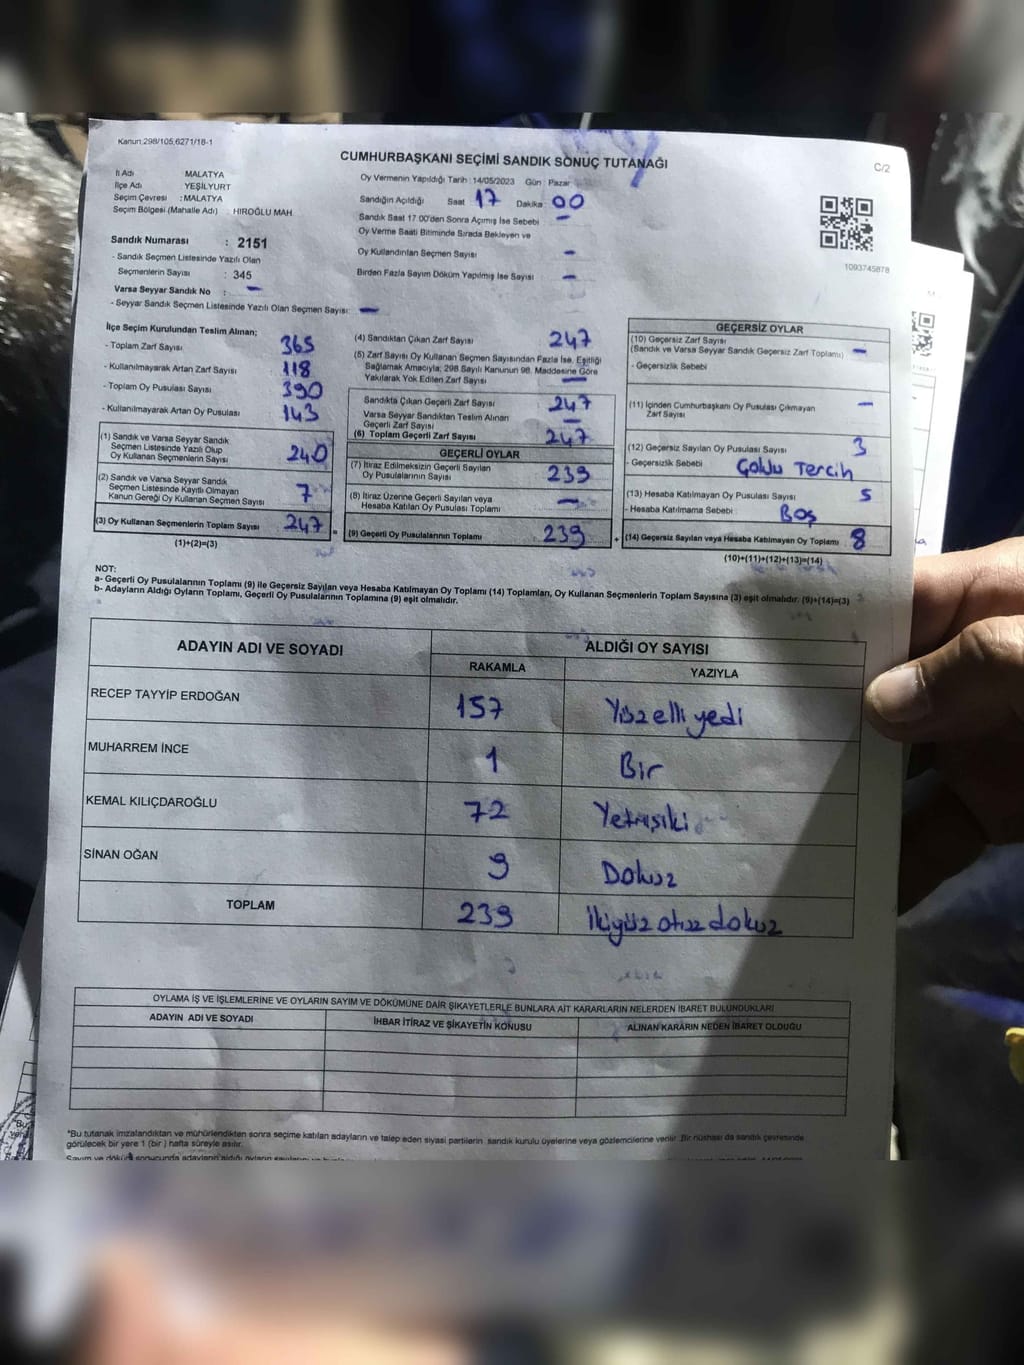 Kanun 298/105,6271/18-1
CUMHURBAŞKANI SEÇİMİ SANDIK SONUÇ TUTANAĞI
C/2
İl Adı MALATYA
İlçe Adı YEŞİLYURT
Seçim Çevresi : MALATYA
Seçim Bölgesi (Mahalle Adı) : HIROĞLU MAH.
Sandık Numarası : 2151
- Sandık Seçmen Listesinde Yazılı Olan
Seçmenlerin Sayısı : 345
Varsa Seyyar Sandık No : -
- Seyyar Sandık Seçmen Listesinde Yazılı Olan Seçmen Sayısı: -
Oy Vermenin Yapıldığı Tarih : 14/05/2023 Gün : Pazar
Sandığın Açıldığı Saat 17 Dakika : 00
Sandık Saat 17.00'den Sonra Açılmış İse Sebebi : -
Oy Verme Saati Bitiminde Sırada Bekleyen ve
Oy Kullandırılan Seçmen Sayısı -
Birden Fazla Sayım Döküm Yapılmış İse Sayısı : -
1093745878
İlçe Seçim Kurulundan Teslim Alınan;
- Toplam Zarf Sayısı 365
- Kullanılmayarak Artan Zarf Sayısı 118
- Toplam Oy Pusulası Sayısı 390
- Kullanılmayarak Artan Oy Pusulası 143
(1) Sandık ve Varsa Seyyar Sandık
Seçmen Listesinde Yazılı Olup
Oy Kullanan Seçmenlerin Sayısı 240
(2) Sandık ve Varsa Seyyar Sandık
Seçmen Listesinde Kayıtlı Olmayan
Kanun Gereği Oy Kullanan Seçmen Sayısı 7
(3) Oy Kullanan Seçmenlerin Toplam Sayısı 247 =
(1)+(2)=(3)
(4) Sandıktan Çıkan Zarf Sayısı 247
(5) Zarf Sayısı Oy Kullanan Seçmen Sayısından Fazla İse, Eşitliği
Sağlamak Amacıyla; 298 Sayılı Kanunun 98. Maddesine Göre
Yakılarak Yok Edilen Zarf Sayısı -
Sandıkta Çıkan Geçerli Zarf Sayısı 247
Varsa Seyyar Sandıktan Teslim Alınan
Geçerli Zarf Sayısı -
(6) Toplam Geçerli Zarf Sayısı 247
GEÇERLİ OYLAR
(7) İtiraz Edilmeksizin Geçerli Sayılan
Oy Pusulalarının Sayısı 239
(8) İtiraz Üzerine Geçerli Sayılan veya
Hesaba Katılan Oy Pusulası Toplamı -
(9) Geçerli Oy Pusulalarının Toplamı 239 +
GEÇERSİZ OYLAR
(10) Geçersiz Zarf Sayısı
(Sandık ve Varsa Seyyar Sandık Geçersiz Zarf Toplamı) -
- Geçersizlik Sebebi
(11) İçinden Cumhurbaşkanı Oy Pusulası Çıkmayan
Zarf Sayısı -
(12) Geçersiz Sayılan Oy Pusulası Sayısı 3
- Geçersizlik Sebebi Çoklu Tercih
(13) Hesaba Katılmayan Oy Pusulası Sayısı 5
- Hesaba Katılmama Sebebi : Boş
(14) Geçersiz Sayılan veya Hesaba Katılmayan Oy Toplamı 8
(10)+(11)+(12)+(13)=(14)
NOT:
a- Geçerli Oy Pusulalarının Toplamı (9) ile Geçersiz Sayılan veya Hesaba Katılmayan Oy Toplamı (14) Toplamları, Oy Kullanan Seçmenlerin Toplam Sayısına (3) eşit olmalıdır. (9)+(14)=(3)
b- Adayların Aldığı Oyların Toplamı, Geçerli Oy Pusulalarının Toplamına (9) eşit olmalıdır.
ADAYIN ADI VE SOYADI ALDIĞI OY SAYISI
RAKAMLA YAZIYLA
RECEP TAYYİP ERDOĞAN 157 Yüzelliyedi
MUHARREM İNCE 1 Bir
KEMAL KILIÇDAROĞLU 72 Yetmişiki
SİNAN OĞAN 9 Dokuz
TOPLAM 239 İkiyüzotuzdokuz
OYLAMA İŞ VE İŞLEMLERİNE VE OYLARIN SAYIM VE DÖKÜMÜNE DAİR ŞİKAYETLERLE BUNLARA AİT KARARLARIN NELERDEN İBARET BULUNDUKLARI
ADAYIN ADI VE SOYADI İHBAR İTİRAZ VE ŞİKAYETİN KONUSU ALINAN KARARIN NEDEN İBARET OLDUĞU
*Bu tutanak imzalandıktan ve mühürlendikten sonra seçime katılan adayların ve talep eden siyasi partilerin sandık kurulu üyelerine veya gözlemcilerine verilir. Bir nüshası da sandık çevresinde
görülecek bir yere 1 (bir) hafta süreyle asılır.